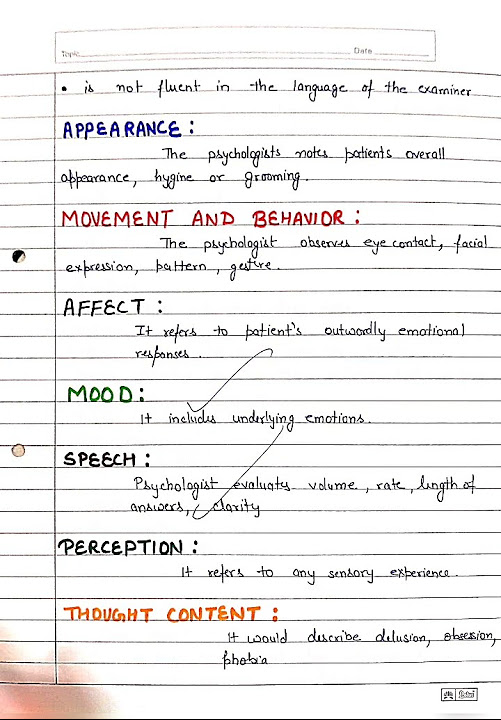 Topic Date
• is not fluent in the language of the examiner
APPEARANCE :
The psychologists notes patients overall
appearance, hygine or grooming.
MOVEMENT AND BEHAVIOR :
The psychologist observes eye contact, facial
expression, pattern, gesture.
AFFECT :
It refers to patient's outwardly emotional
responses.
MOOD :
It includes underlying emotions.
SPEECH :
Psychologist evaluates volume, rate, length of
answers, clarity
PERCEPTION :
It refers to any sensory experience.
THOUGHT CONTENT :
It would describe delusion, obsession,
phobia